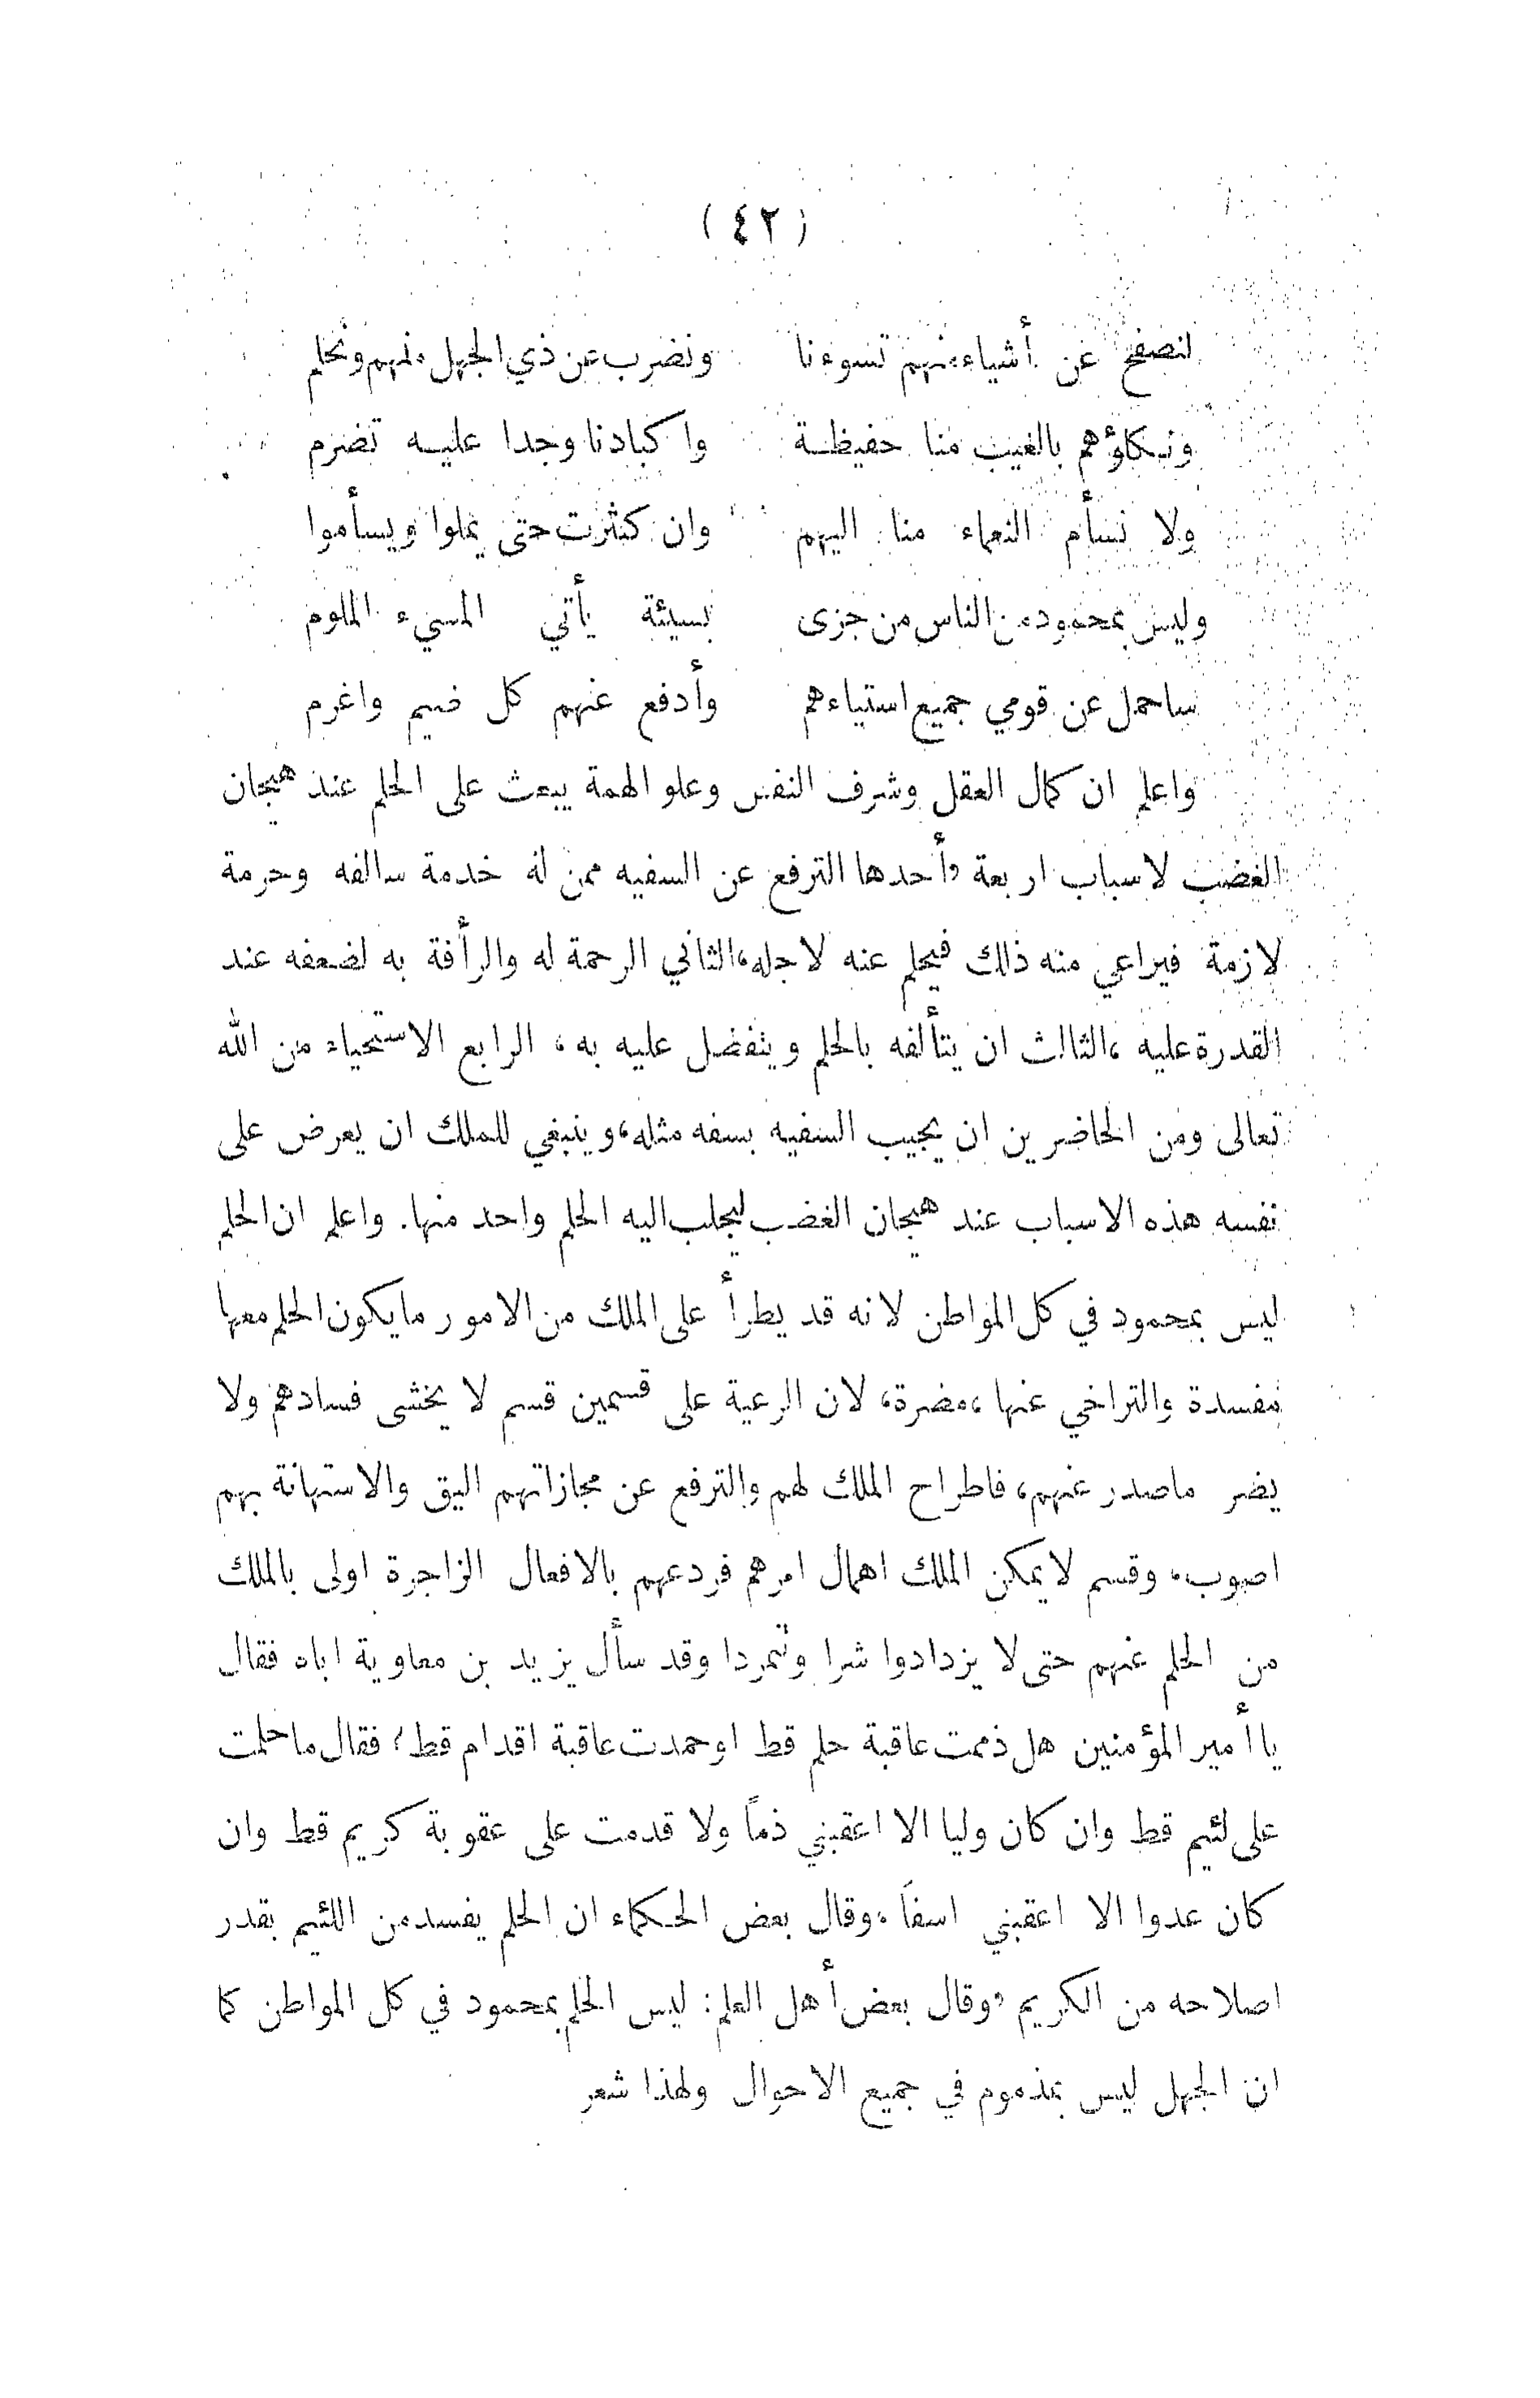 (٤٢)
لنصفح عن أشياء منهم تسوءنا ونضرب عن ذي الجهل منهم ونحلم
ونكلؤهم بالغيب منا حفيظة واكبادنا وجدا عليه تضرم
ولا نسأم النعماء منا اليهم وان كثرت حتى يملوا ويسأموا
وليس بمحمود من الناس من جزى بسيئة يأتي المسيء الملوم
ساحمل عن قومي جميع استياءهم وأدفع عنهم كل ضيم واغرم
واعلم ان كمال العقل وشرف النفس وعلو الهمة يبعث على الحلم عند هيجان
الغضب لاسباب اربعة، أحدها الترفع عن السفيه ممن له خدمة سالفه وحرمة
لازمة فيراعي منه ذلك فيحلم عنه لاجله، الثاني الرحمة له والرأفة به لضعفه عند
القدرة عليه، الثالث ان يتألفه بالحلم ويتفضل عليه به، الرابع الاستحياء من الله
تعالى ومن الحاضرين ان يجيب السفيه بسفه مثله، وينبغي للملك ان يعرض على
نفسه هذه الاسباب عند هيجان الغضب ليجلب اليه الحلم واحد منها. واعلم ان الحلم
ليس بمحمود في كل المواطن لانه قد يطرأ على الملك من الامور ما يكون الحلم معها
مفسدة والتراخي عنها، مضرة، لان الرعية على قسمين قسم لا يخشى فسادهم ولا
يضر ماصدر عنهم، فاطراح الملك لهم والترفع عن مجازاتهم اليق والاستهانة بهم
اصوب، وقسم لا يمكن الملك اهمال امرهم فردعهم بالافعال الزاجرة اولى بالملك
من الحلم عنهم حتى لا يزدادوا شرا وتمردا وقد سأل يزيد بن معاوية اباه فقال
يا أمير المؤمنين هل ذممت عاقبة حلم قط او حمدت عاقبة اقدام قط، فقال ما حلمت
على لئيم قط وان كان وليا الا اعقبني ذماً ولا قدمت على عقوبة كريم قط وان
كان عدوا الا اعقبني اسفاً، وقال بعض الحكماء ان الحلم يفسد من اللئيم بقدر
اصلاحه من الكريم، وقال بعض أهل العلم: ليس الحلم بمحمود في كل المواطن كما
ان الجهل ليس بمذموم في جميع الاحوال ولهذا شعر